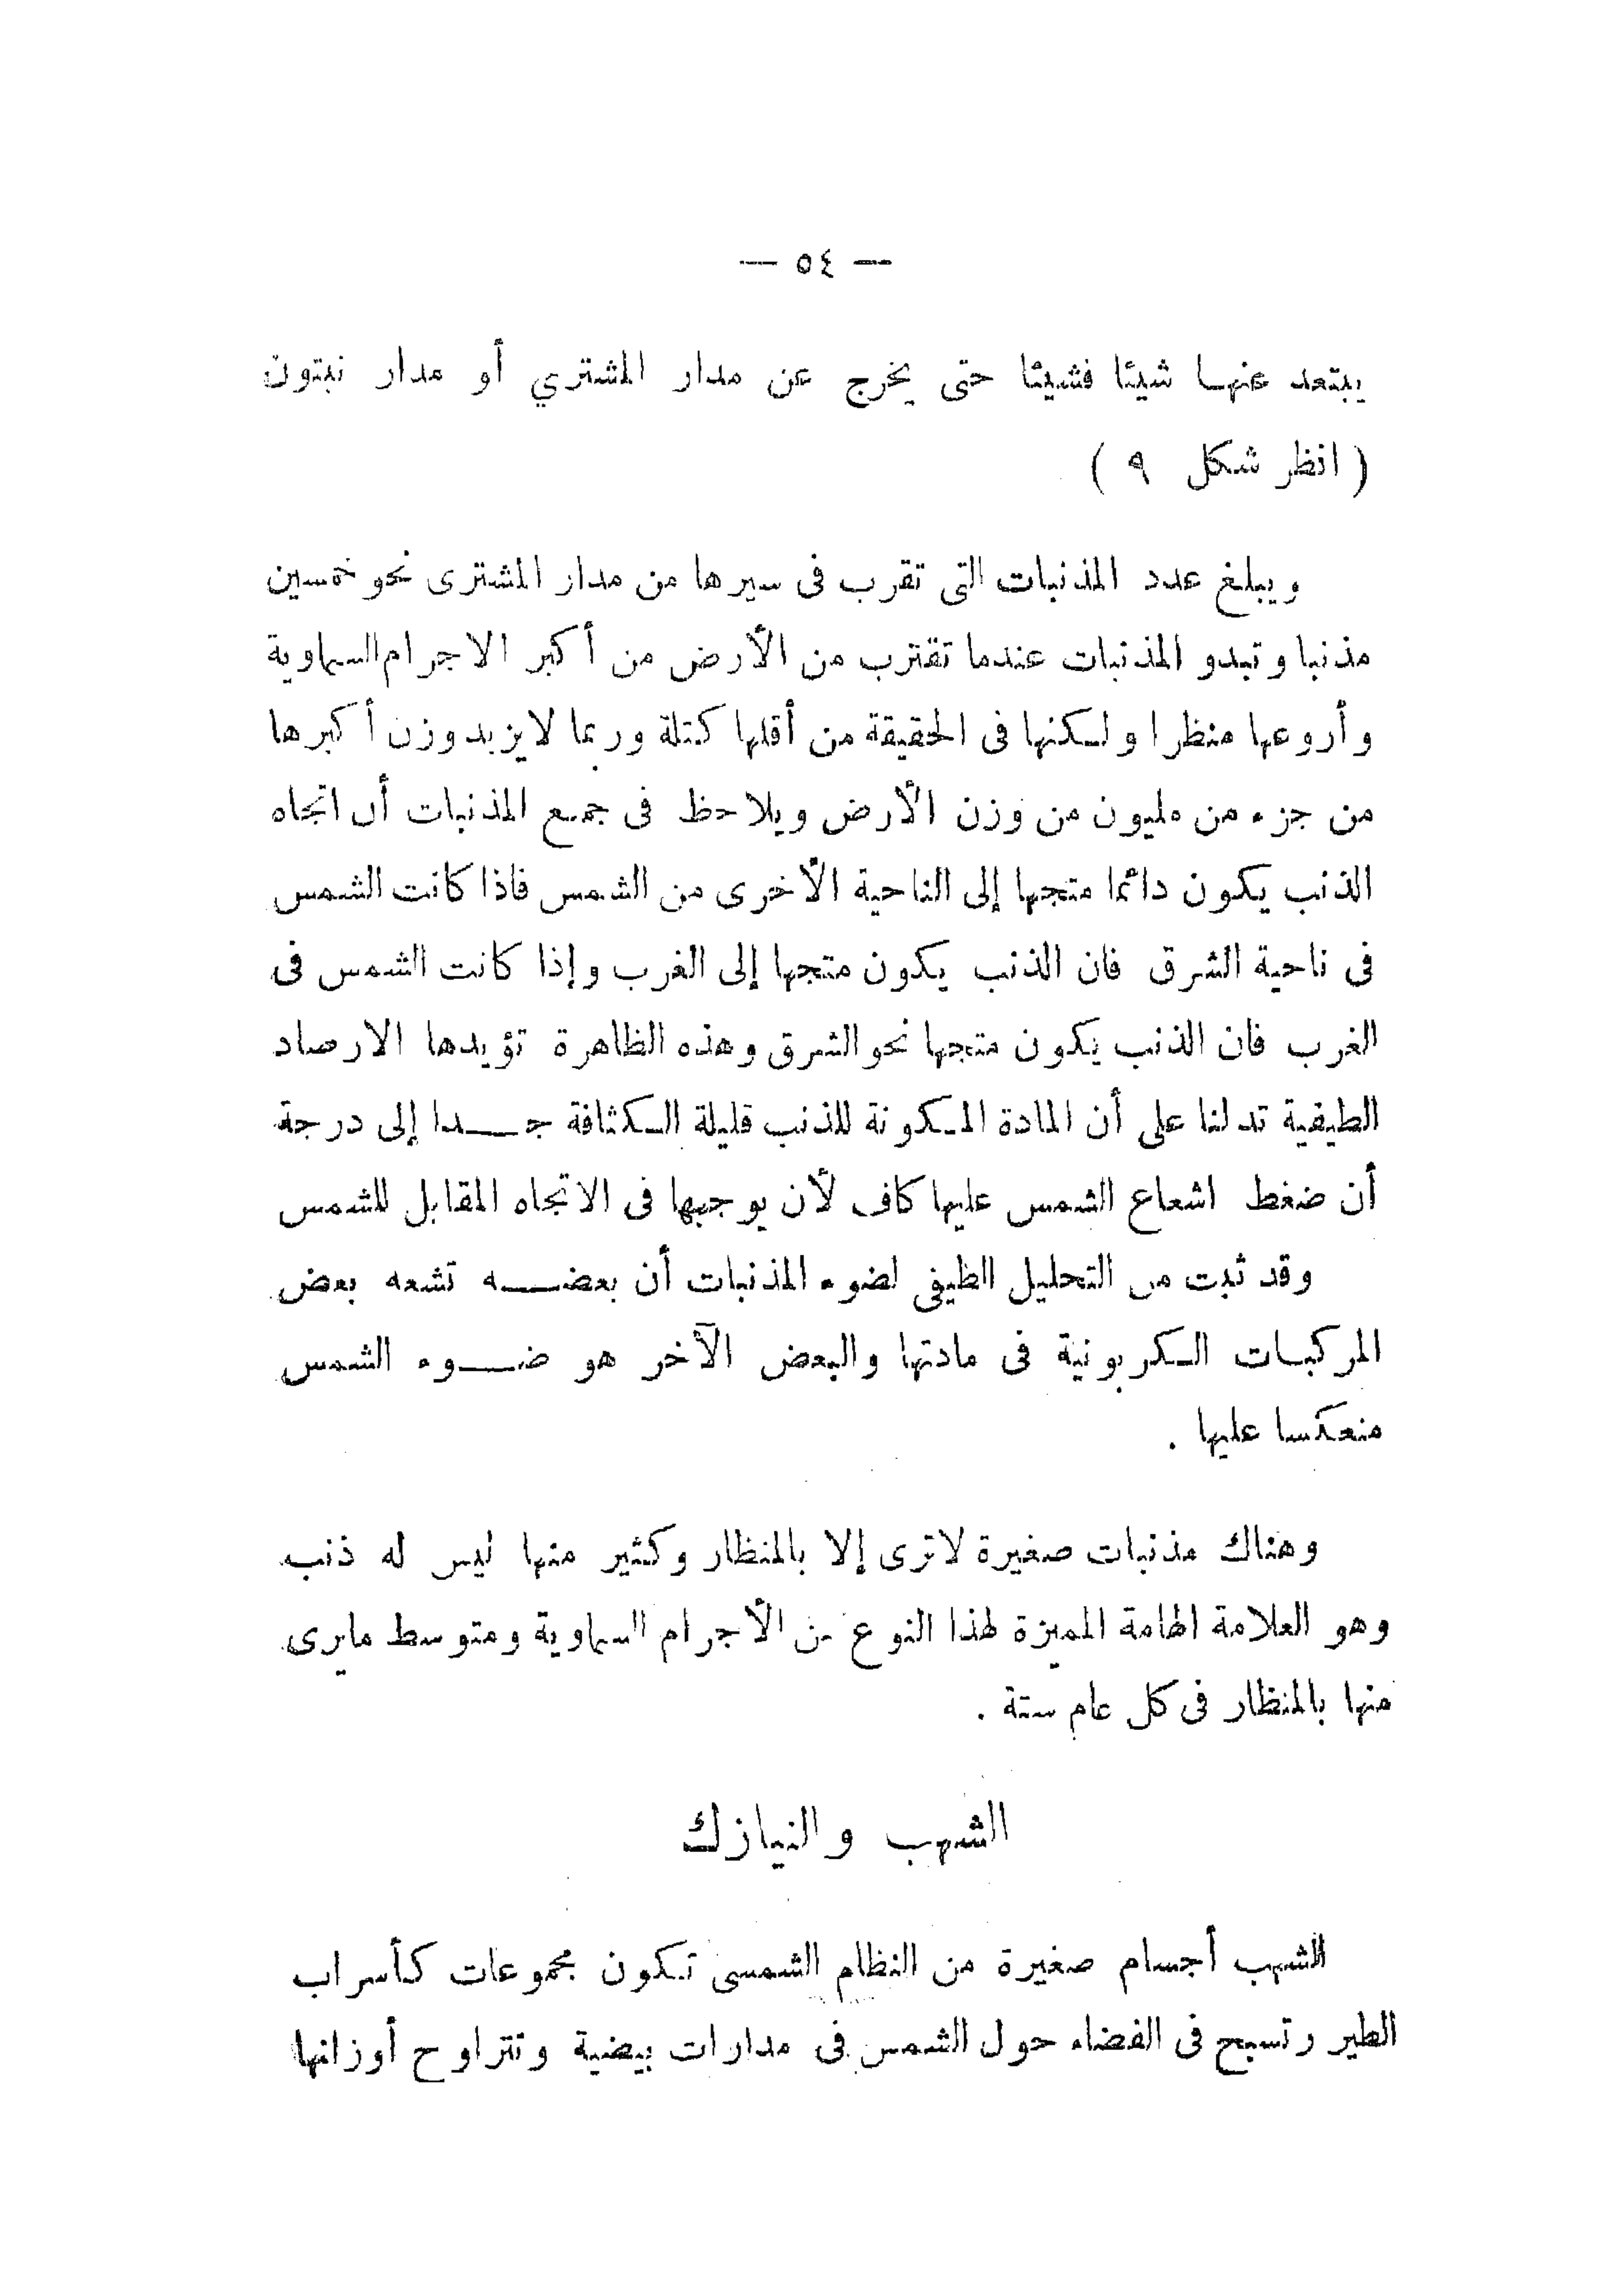 — ٥٤ —
يبتعد عنها شيئا فشيئا حتى يخرج عن مدار المشتري أو مدار نبتون
( انظر شكل ٩ )
ويبلغ عدد المذنبات التى تقرب فى سيرها من مدار المشترى نحو خمسين
مذنبا وتبدو المذنبات عندما تقترب من الأرض من أكبر الاجرام السماوية
وأروعها منظرا ولكنها فى الحقيقة من أقلها كتلة وربما لايزيد وزن أكبرها
من جزء من مليون من وزن الأرض ويلاحظ فى جميع المذنبات أن اتجاه
الذنب يكون دائما متجها إلى الناحية الأخرى من الشمس فاذا كانت الشمس
فى ناحية الشرق فان الذنب يكون متجها إلى الغرب وإذا كانت الشمس فى
الغرب فان الذنب يكون متجها نحو الشرق وهذه الظاهرة تؤيدها الارصاد
الطيفية تدلنا على أن المادة المكونة للذنب قليلة الكثافة جـــدا إلى درجة
أن ضغط اشعاع الشمس عليها كاف لأن يوجهها فى الاتجاه المقابل للشمس
وقد ثبت من التحليل الطيفى لضوء المذنبات أن بعضـــه تشعه بعض
المركبات الكربونية فى مادتها والبعض الآخر هو ضـــوء الشمس
منعكسا عليها .
وهناك مذنبات صغيرة لاترى إلا بالمنظار وكثير منها ليس له ذنب
وهو العلامة الهامة المميزة لهذا النوع من الأجرام السماوية ومتوسط مايرى
منها بالمنظار فى كل عام ستة .
الشهب والنيازك
الشهب أجسام صغيرة من النظام الشمسى تكون مجموعات كأسراب
الطير وتسبح فى الفضاء حول الشمس فى مدارات بيضية وتتراوح أوزانها